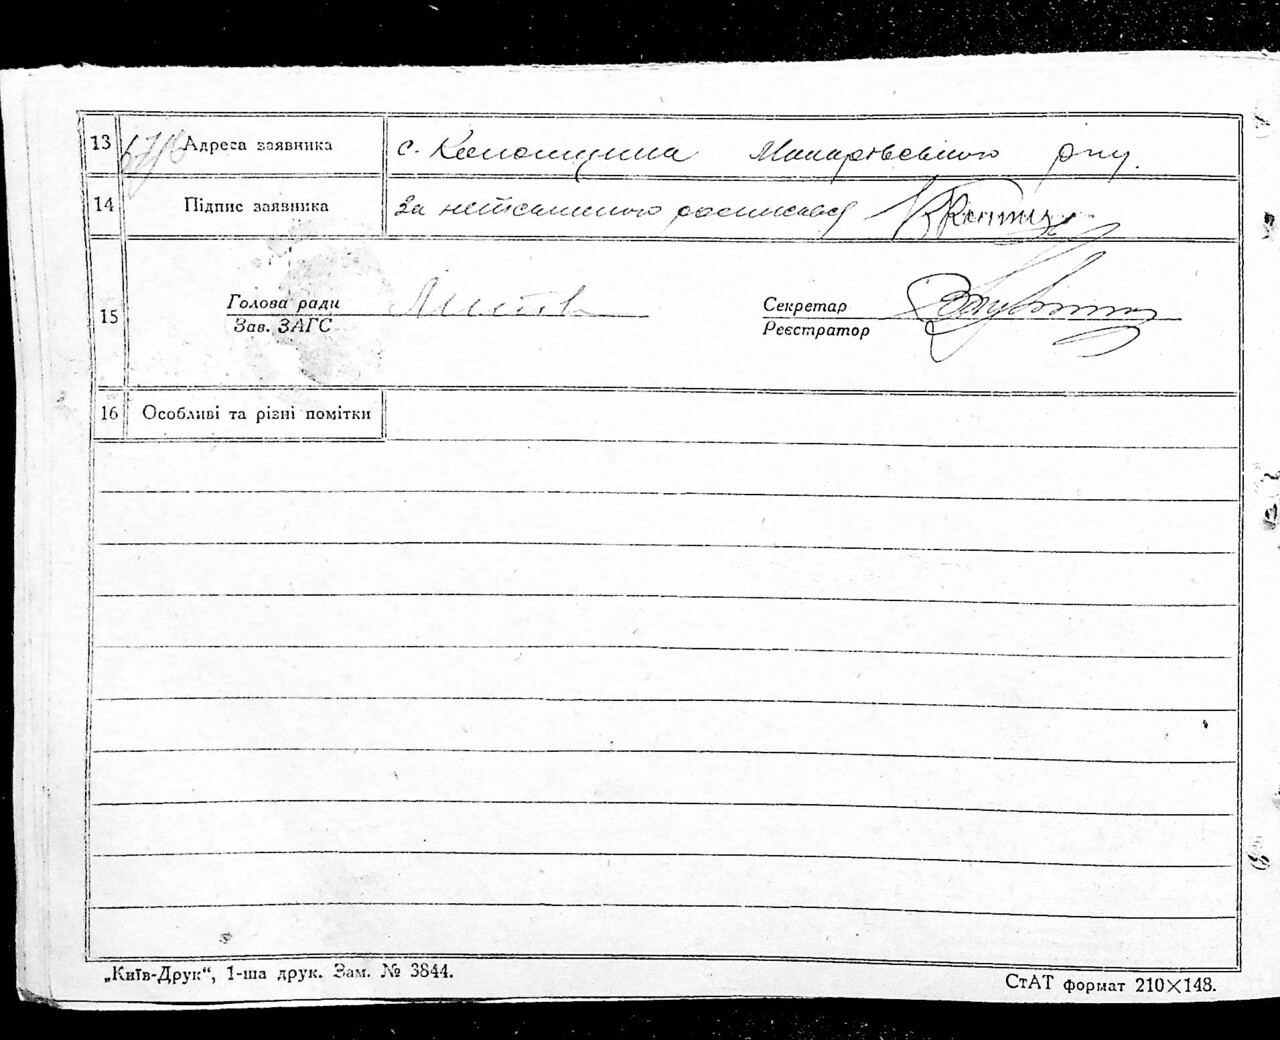 13 Адреса заявника с. Колонщина Макарівського р-ну.
14 Підпис заявника За неписьменного росписався
15 Голова ради
Зав. ЗАГС
Секретар
Реєстратор
16 Особливі та різні помітки
„Київ-Друк“, 1-ша друк. Зам. № 3844.
СтАТ формат 210×148.